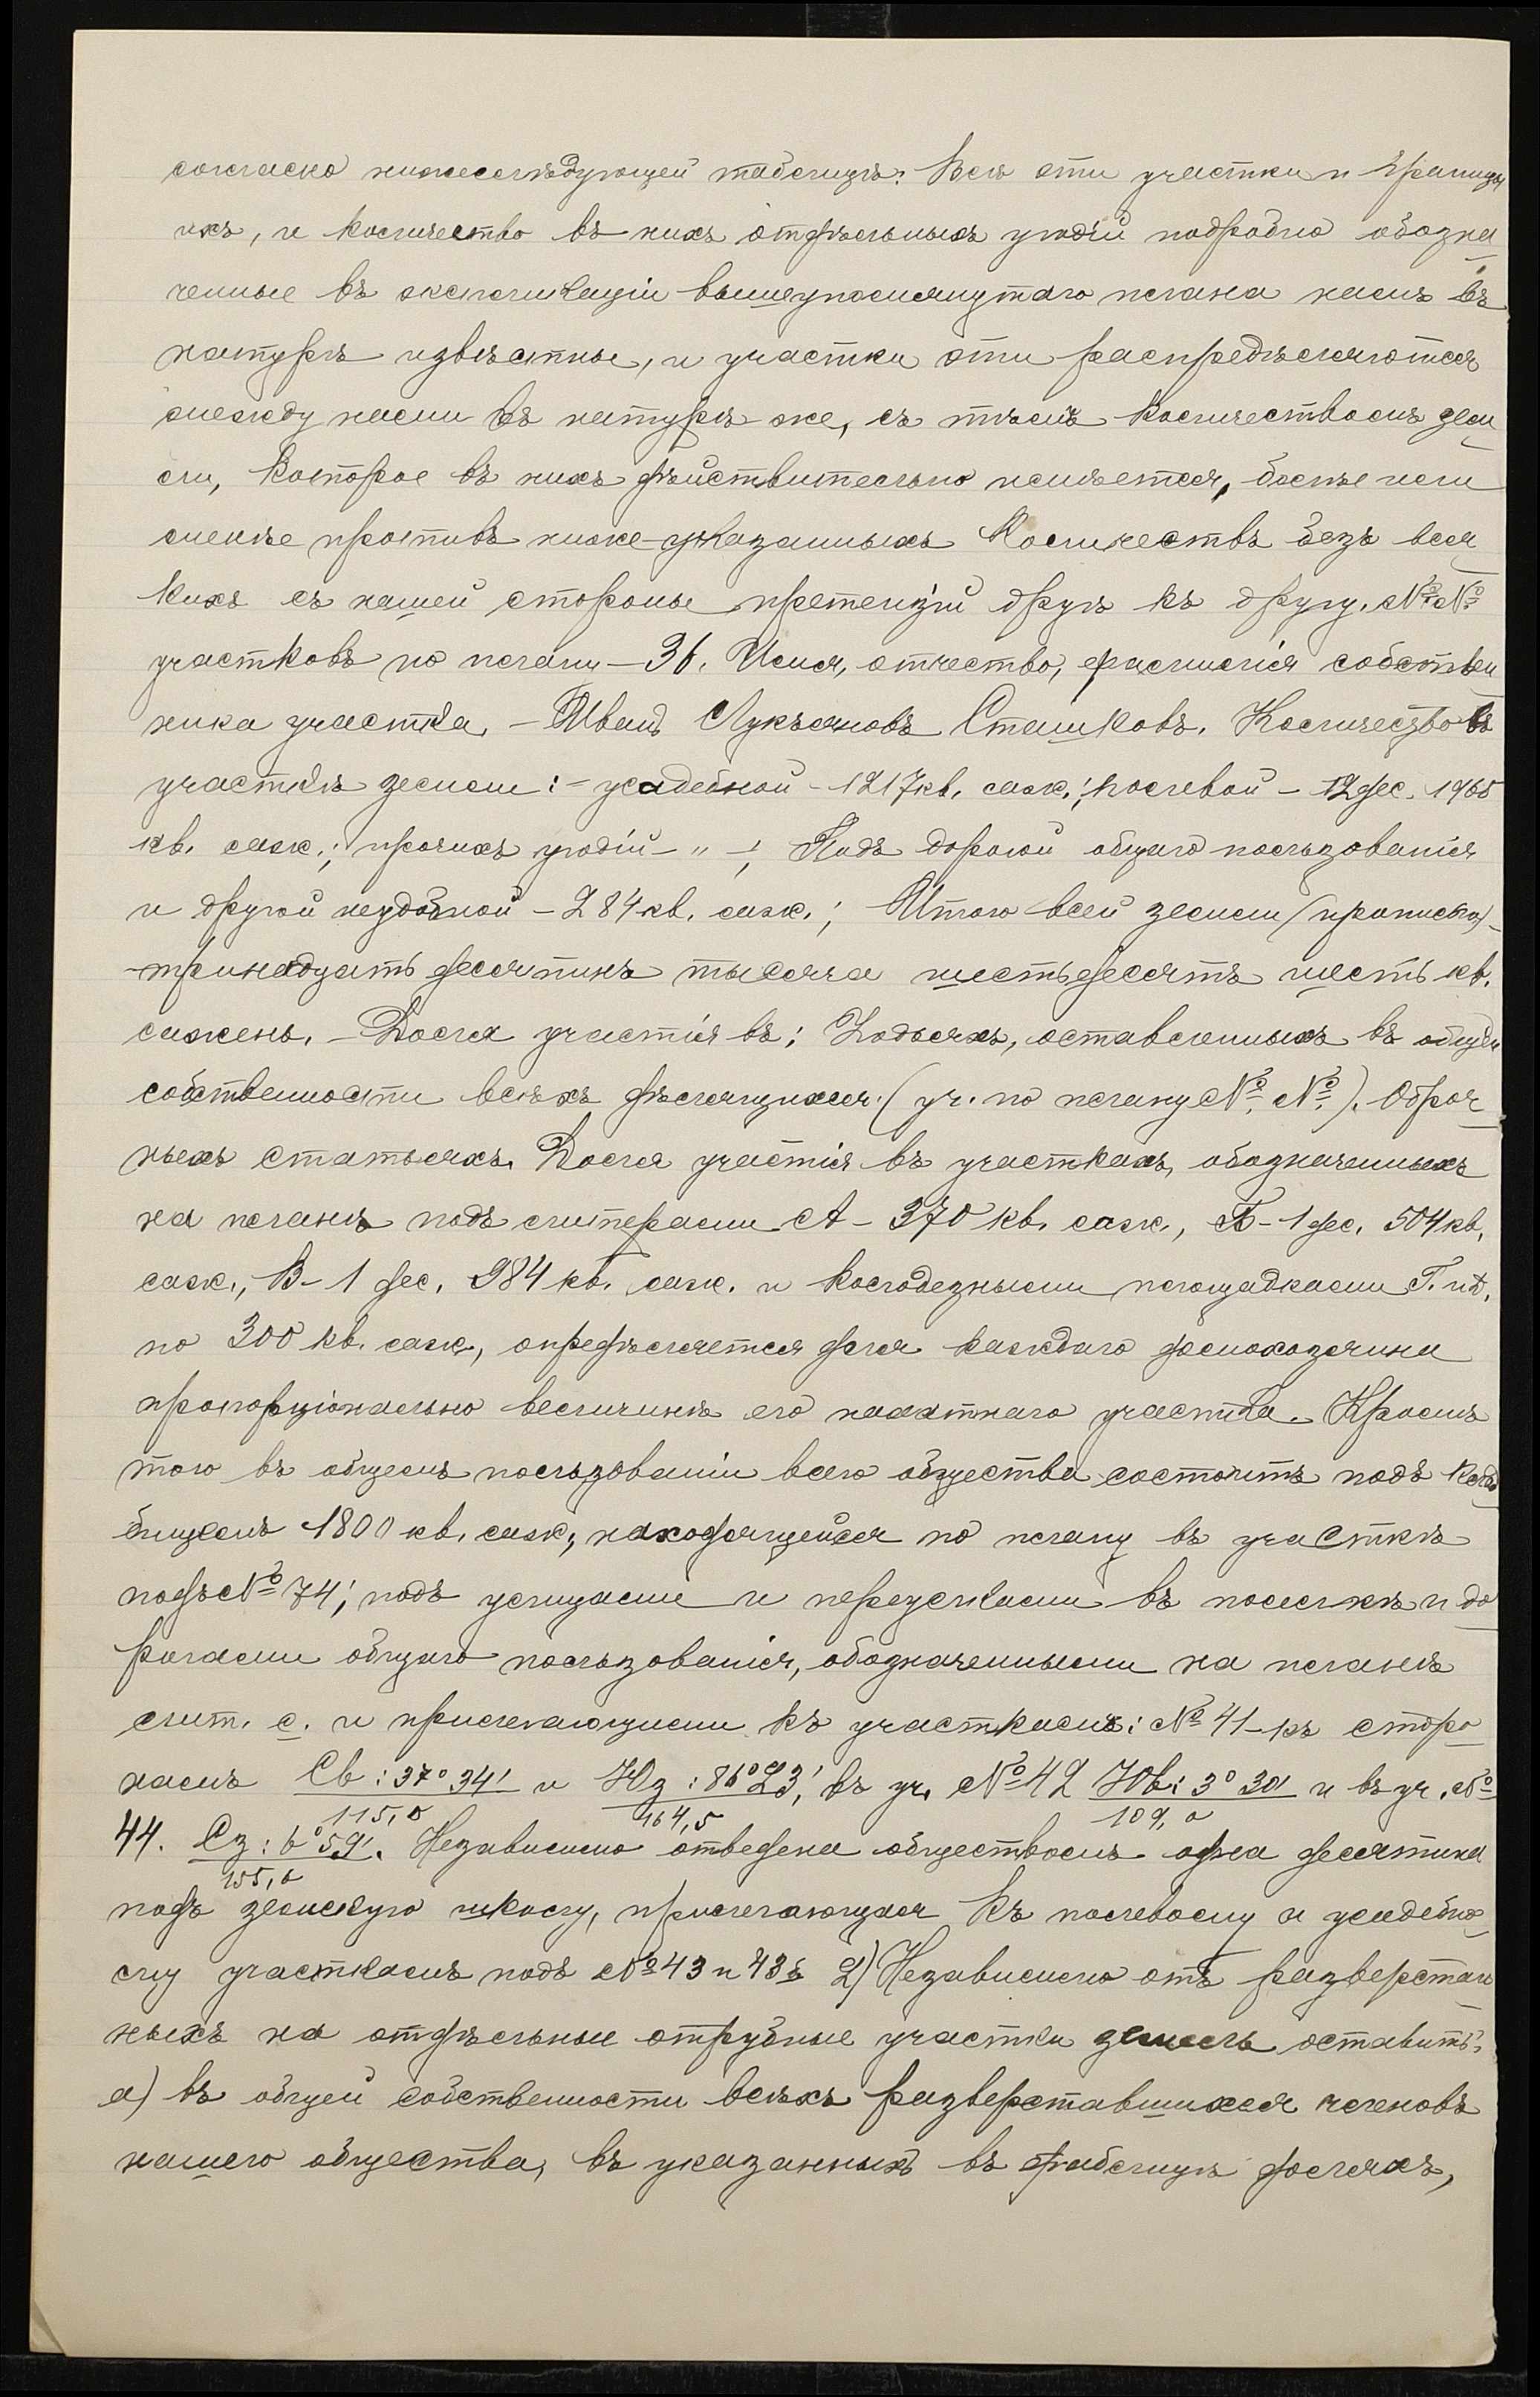 согласно нижеслѣдующей таблицѣ: Всѣ эти участки и границы
ихъ, и количество въ нихъ отдѣльныхъ угодій подробно обозна
ченные въ экспликаціи вышеупомянутаго плана намъ въ
натурѣ извѣстны, и участки эти распредѣляются
между нами въ натурѣ же, съ тѣмъ количествомъ зем
ли, которое въ нихъ дѣйствительно имѣется, болѣе или
менѣе противъ ниже-указанныхъ количествъ безъ вся
кихъ съ нашей стороны претензій другъ къ другу. №№
участковъ по плану – 36. Имя, отчество, фамилія собствен
ника участка, – Иванъ Лукьяновъ Сташковъ. Количество въ
участкѣ земли: – усадебной – 1217 кв. саж.; полевой – 12 дес. 1965
кв. саж.; прочихъ угодій – „ –; Подъ дорогой общаго пользованія
и другой неудобной – 284 кв. саж.; Итого всей земли (прописью) –
тринадцать десятинъ тысяча шестьдесятъ шесть кв.
сажень. – Доля участія въ: Водьяхъ, оставленныхъ въ общей
собственности всѣхъ дѣлящихся. (уч. по плану № №). Оброч
ныхъ статьяхъ. Доля участія въ участкахъ, обозначенныхъ
на планѣ подъ литерами А – 370 кв. саж., Б – 1 дес. 504 кв.
саж., В – 1 дес. 984 кв. саж. и колодезными площадками Г. и Д.
по 300 кв. саж., опредѣляется для каждаго домохозяина
пропорціонально величинѣ его надѣльнаго участка. Кромѣ
того въ общемъ пользованіи всего общества состоитъ подъ клад
бищемъ 1800 кв. саж., находящейся по плану въ участкѣ
подъ № 74; подъ улицами и переулками въ поселкѣ и до
рогами общаго пользованія, обозначенными на планѣ
лит. с. и прилегающими къ участкамъ: № 41 – къ сторо
намъ Св: 37° 34' и Юз: 86° 23', въ уч. № 42 Юв: 3° 30' и въ уч. №
115,0 164,5 109,0
44. Сз: 6° 59'. Независимо отведена обществомъ одна десятина
155,0
подъ земскую школу, прилегающая къ полевому и усадебно
му участкамъ подъ № 43 и 43ѣ 2) Независимо отъ разверстан
ныхъ на отдѣльные отрубные участки земель оставить:
а) въ общей собственности всѣхъ разверставшихся членовъ
нашего общества, въ указанныхъ въ таблицѣ доляхъ,